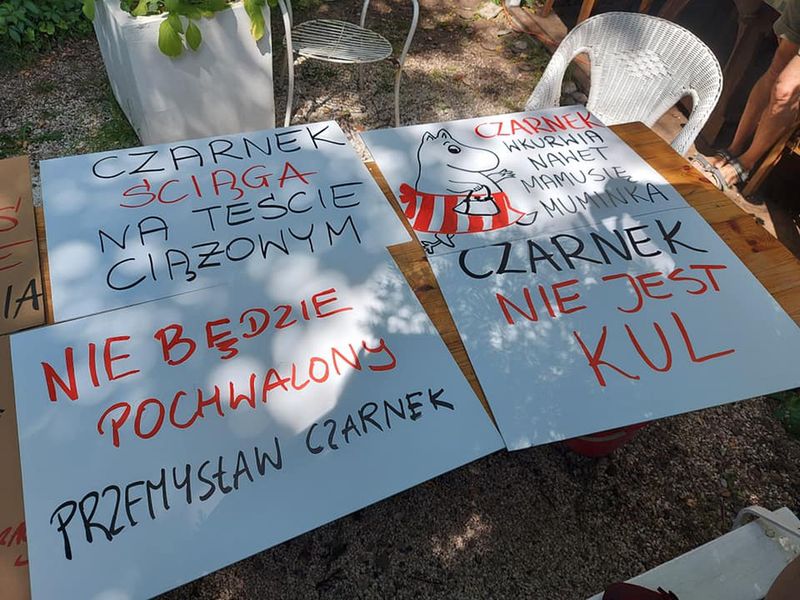 CZARNEK
ŚCIĄGA
NA TEŚCIE
CIĄŻOWYM
CZARNEK
WKURWIA
NAWET
MAMUSIĘ
MUMINKA
NIE BĘDZIE
POCHWALONY
PRZEMYSŁAW CZARNEK
CZARNEK
NIE JEST
KUL